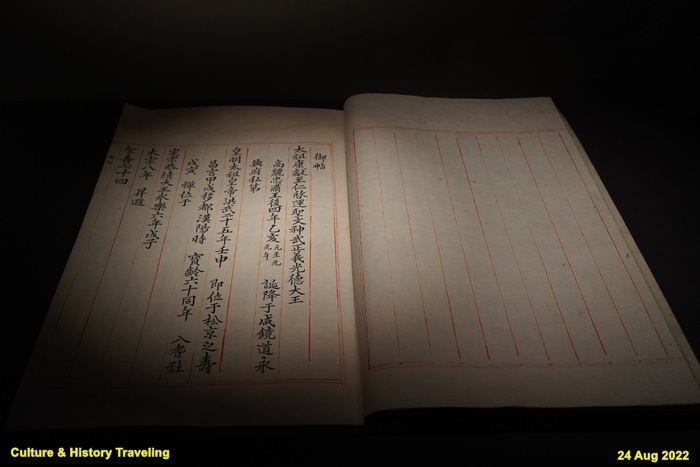 御帖
太祖康獻至仁啓運聖文神武正義光德大王
高麗忠肅王後四年乙亥 元至元元年 誕降于咸鏡道永
興府私第
皇明太祖皇帝洪武二十五年壬申 即位于松京之壽
昌宮甲戌移都漢陽時 寶齡六十同年 入耆社
戊寅 禪位于
定宗恭靖大王永樂六年戊子
太宗八年 昇遐
聖壽七十四
Culture & History Traveling
24 Aug 2022